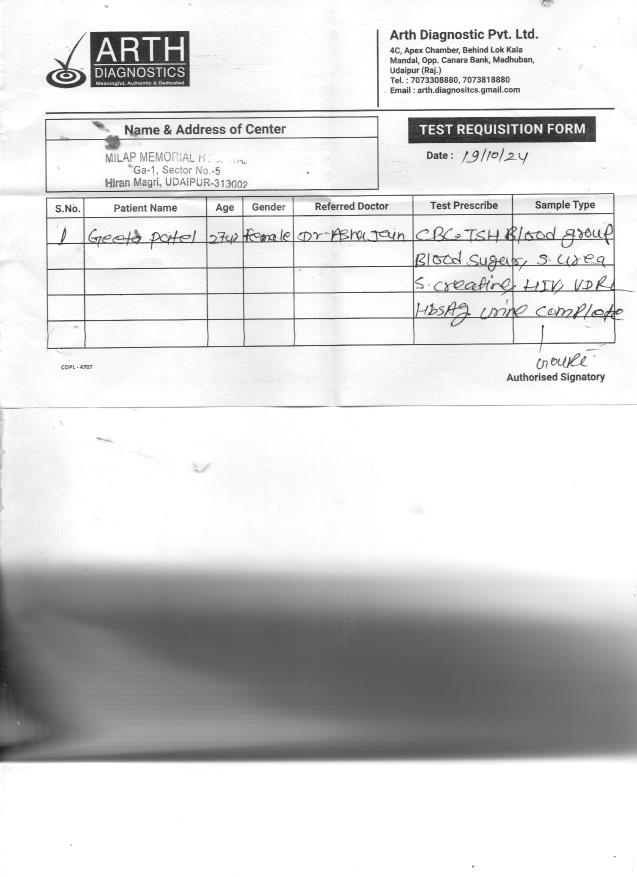 ARTH
DIAGNOSTICS
Meaningful, Authentic & Dedicated
Arth Diagnostic Pvt. Ltd.
4C, Apex Chamber, Behind Lok Kala
Mandal, Opp. Canara Bank, Madhuban,
Udaipur (Raj.)
Tel. : 7073308880, 7073818880
Email : arth.diagnositcs.gmail.com
Name & Address of Center
MILAP MEMORIAL
Ga-1, Sector No.-5
Hiran Magri, UDAIPUR-313002
TEST REQUISITION FORM
Date : 19/10/24
S.No. Patient Name Age Gender Referred Doctor Test Prescribe Sample Type
1 Geeta Patel 27 female Dr Asha Jain CBC. TSH Blood group
Blood Sugar, S. urea
S. creatine, HIV, VDRL
HbsAg urine complete
Authorised Signatory
CDPL - 4707